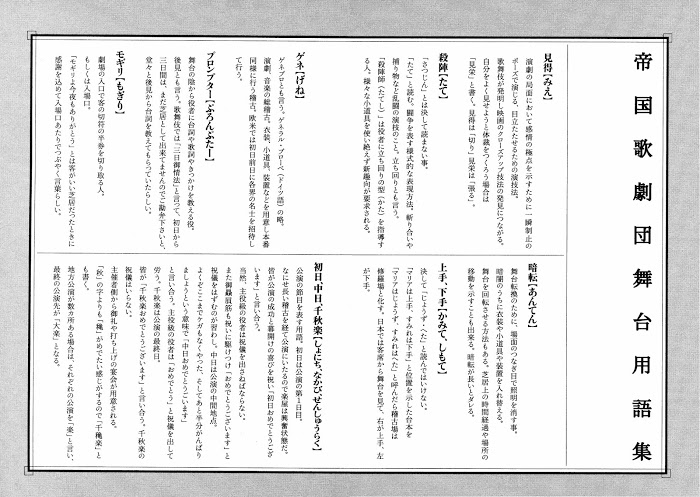 帝国歌劇団舞台用語集
見得【みえ】
演劇の局面において感情の極点を示すために一瞬制止の
ポーズで演じる、目立たせるための演技法。
歌舞伎が発明し映画のクローズアップ技法の発見につながる。
自分をよく見せようと体裁をつくろう場合は
「見栄」と書く。見得は「切り」見栄は「張る」。
殺陣【たて】
「さつじん」とは決して読まない事。
「たて」と読む。闘争を表す様式的な表現方法。斬り合いや
捕り物など乱闘の演技のこと。立ち回りとも言う。
「殺陣師（たてし）」は役者に立ち回りの型（かた）を指導す
る人。様々な小道具を使い絶えず新趣向が要求される。
ゲネ【げね】
ゲネプロとも言う。ゲネラル・プローベ（ドイツ語）の略。
演劇、音楽の総稽古。衣装、小道具、装置などを用意し本番
同様に行う稽古。欧米では初日前日に各界の名士を招待し
て行う。
プロンプター【ぷろんぷたー】
舞台の陰から役者に台詞や歌詞やきっかけを教える役。
後見とも言う。歌舞伎では「三日御情法」と言って、初日から
三日間は、まだ芝居として出来てませんでご勘弁下さいと、
堂々と後見から台詞を教えてもらっていたらしい。
モギリ【もぎり】
劇場の入口で客の切符の半券を切り取る人。
もしくは入場口。
「モギリよ今夜もありがとう」とは客がいい芝居だったときに
感謝を込めて入場口あたりでつぶやく言葉らしい。
暗転【あんてん】
舞台転換のために、場面のつなぎ目で照明を消す事。
暗闇のうちに衣装や小道具や装置を入れ替える。
舞台を回転させる方法もある。芝居上の時間経過や場所の
移動を示すことも出来る。暗転が長いとダレる。
上手、下手【かみて、しもて】
決して「じょうず、へた」と読んではいけない。
「マリアは上手、すみれは下手」と位置を示した台本を
「マリアはじょうず、すみれはへた」と呼んだら稽古場は
修羅場と化す。日本では客席から舞台を見て、右が上手、左
が下手。
初日、中日、千秋楽【しょにち、なかび、せんしゅうらく】
公演の節目を表す用語。初日は公演の第１日目。
なにせ長い稽古を経て公演にいたるので楽屋は興奮状態だ。
皆が公演の成功と幕開けの喜びを祝い「初日おめでとうござ
います」と言い合う。
当然、主役級の役者は祝儀を出さねばならない。
また御贔屓筋も祝いに駆けつけ「おめでとうございます」と
祝儀をはずむのが習わし。中日は公演の中間地点。
よくぞここまでケガもなくやった、そしてあと半分がんばり
ましょうという意味で「中日おめでとうございます」
と言い合う。主役級の役者は「おめでとう」と祝儀を出して
労う。千秋楽は公演の最終日。
皆が「千秋楽おめでとうございます」と言い合う。千秋楽の
祝儀はいらない。
主催者側から御礼や打ち上げの宴会が用意される。
「秋」の字よりも「穐」がめでたい感じがするので「千穐楽」と
も書く。
地方公演が数カ所ある場合は、それぞれの公演を「楽」と言い、
最終の公演先が「大楽」となる。